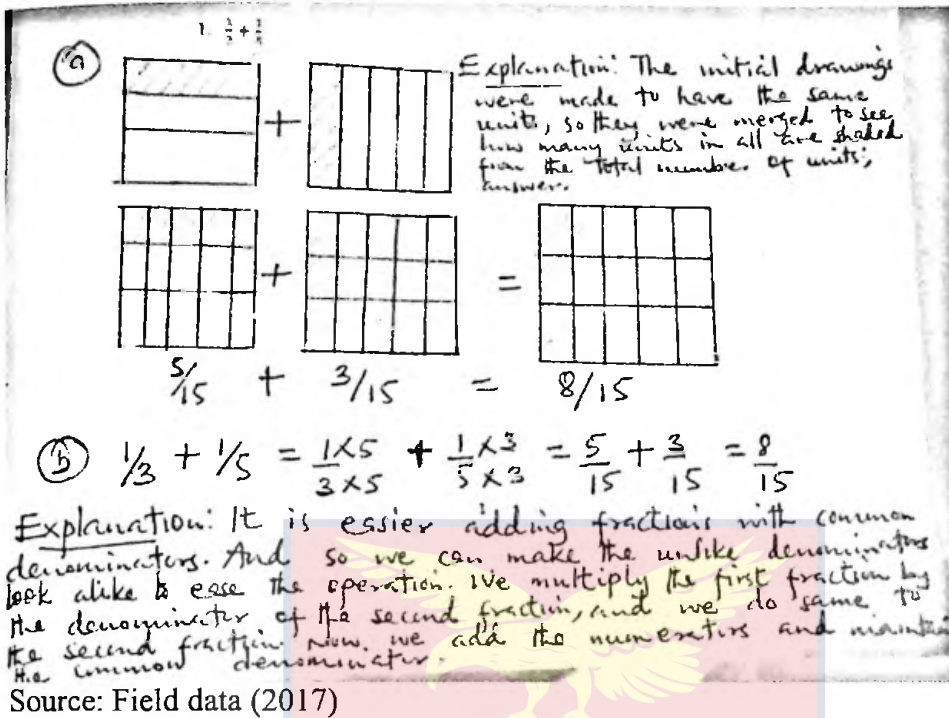 1. 1/3 + 1/5
(a)
Explanation: The initial drawings
were made to have the same
units, so they were merged to see
how many units in all are shaded
from the total number of units;
answer.
+
+ =
5/15 + 3/15 = 8/15
(b) 1/3 + 1/5 = 1×5/3×5 + 1×3/5×3 = 5/15 + 3/15 = 8/15
Explanation: It is easier adding fractions with common
denominators. And so we can make the unlike denominators
look alike to ease the operation. We multiply the first fraction by
the denominator of the second fraction, and we do same to
the second fraction. Now we add the numerators and maintain
the common denominator.
Source: Field data (2017)